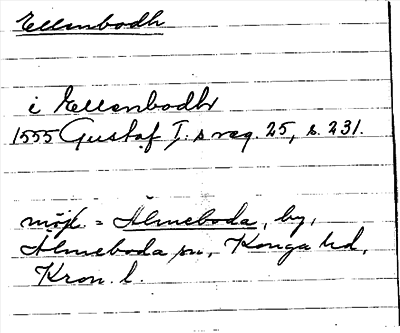 Ellenbodh
i Ellenbodhr
1555 Gustaf I:s reg. 25, s. 231.
möjl. = Älmeboda, by,
Älmeboda sn, Konga hd,
Kron. l.